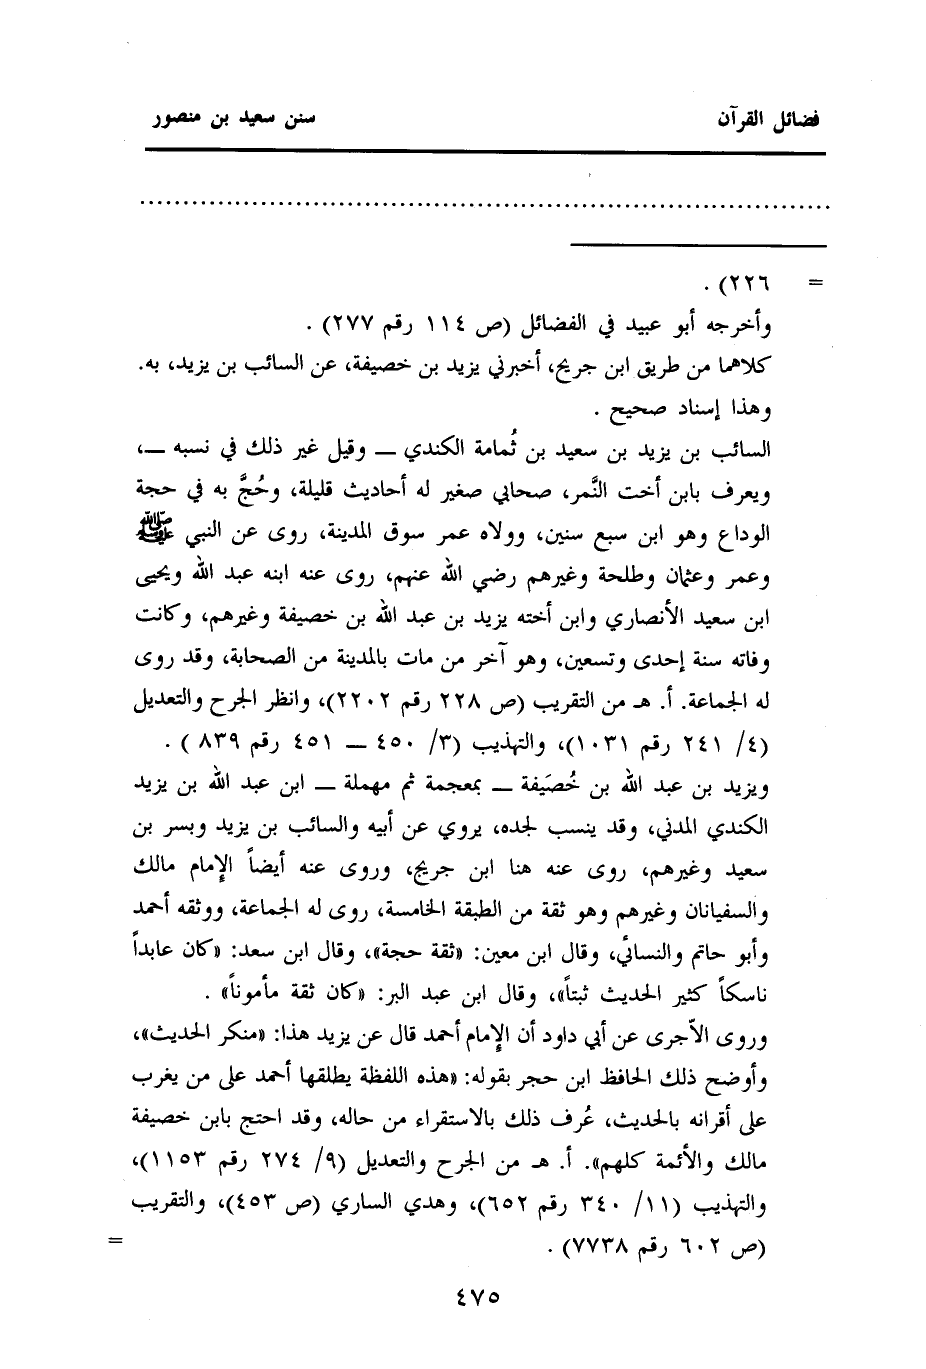 فضائل القرآن
سنن سعيد بن منصور
= ٢٢٦) .
وأخرجه أبو عبيد في الفضائل (ص ١١٤ رقم ٢٧٧) .
كلاهما من طريق ابن جريج، أخبرني يزيد بن خصيفة، عن السائب بن يزيد، به.
وهذا إسناد صحيح .
السائب بن يزيد بن سعيد بن ثُمامة الكندي ــ وقيل غير ذلك في نسبه ــ،
ويعرف بابن أخت النَّمر، صحابي صغير له أحاديث قليلة، وحُجَّ به في حجة
الوداع وهو ابن سبع سنين، وولاه عمر سوق المدينة، روى عن النبي ﷺ
وعمر وعثمان وطلحة وغيرهم رضي الله عنهم، روى عنه ابنه عبد الله ويحيى
ابن سعيد الأنصاري وابن أخته يزيد بن عبد الله بن خصيفة وغيرهم، وكانت
وفاته سنة إحدى وتسعين، وهو آخر من مات بالمدينة من الصحابة، وقد روى
له الجماعة. أ. هـ من التقريب (ص ٢٢٨ رقم ٢٢٠٢)، وانظر الجرح والتعديل
(٤/ ٢٤١ رقم ١٠٣١)، والتهذيب (٣/ ٤٥٠ ــ ٤٥١ رقم ٨٣٩ ) .
ويزيد بن عبد الله بن خُصَيفة ــ بمعجمة ثم مهملة ــ ابن عبد الله بن يزيد
الكندي المدني، وقد ينسب لجده، يروي عن أبيه والسائب بن يزيد وبسر بن
سعيد وغيرهم، روى عنه هنا ابن جريج، وروى عنه أيضاً الإمام مالك
والسفيانان وغيرهم وهو ثقة من الطبقة الخامسة، روى له الجماعة، ووثقه أحمد
وأبو حاتم والنسائي، وقال ابن معين: «ثقة حجة»، وقال ابن سعد: «كان عابداً
ناسكاً كثير الحديث ثبتاً»، وقال ابن عبد البر: «كان ثقة مأموناً» .
وروى الآجرى عن أبي داود أن الإمام أحمد قال عن يزيد هذا: «منكر الحديث»،
وأوضح ذلك الحافظ ابن حجر بقوله: «هذه اللفظة يطلقها أحمد على من يغرب
على أقرانه بالحديث، عُرف ذلك بالاستقراء من حاله، وقد احتج بابن خصيفة
مالك والأئمة كلهم». أ. هـ من الجرح والتعديل (٩/ ٢٧٤ رقم ١١٥٣)،
والتهذيب (١١/ ٣٤٠ رقم ٦٥٢)، وهدي الساري (ص ٤٥٣)، والتقريب
(ص ٦٠٢ رقم ٧٧٣٨) . =
٤٧٥